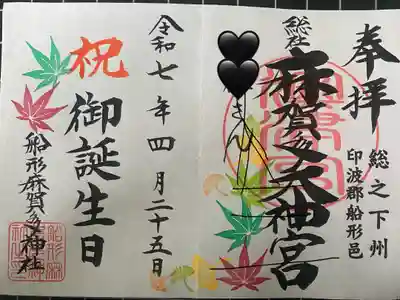 奉拝
総之下州
印波郡船形邑
総社
麻賀多大神宮
さん
令和七年四月二十五日
祝
御誕生日
船形麻賀多神社